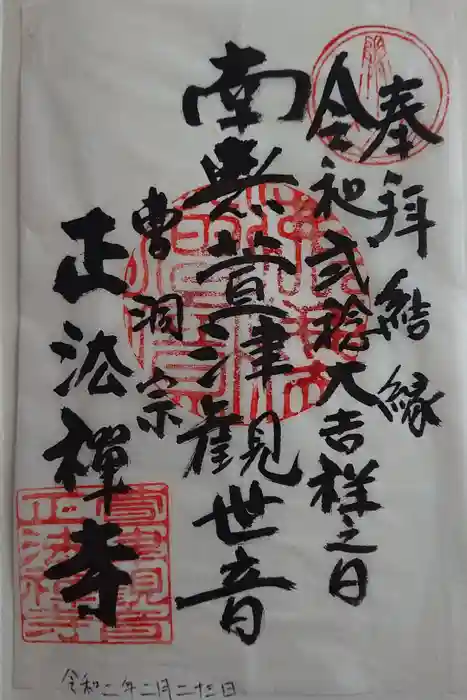 奉拝結縁
令和弐稔大吉祥之日
南無萱津観世音
曹洞宗
正法禅寺
令和二年二月二十三日